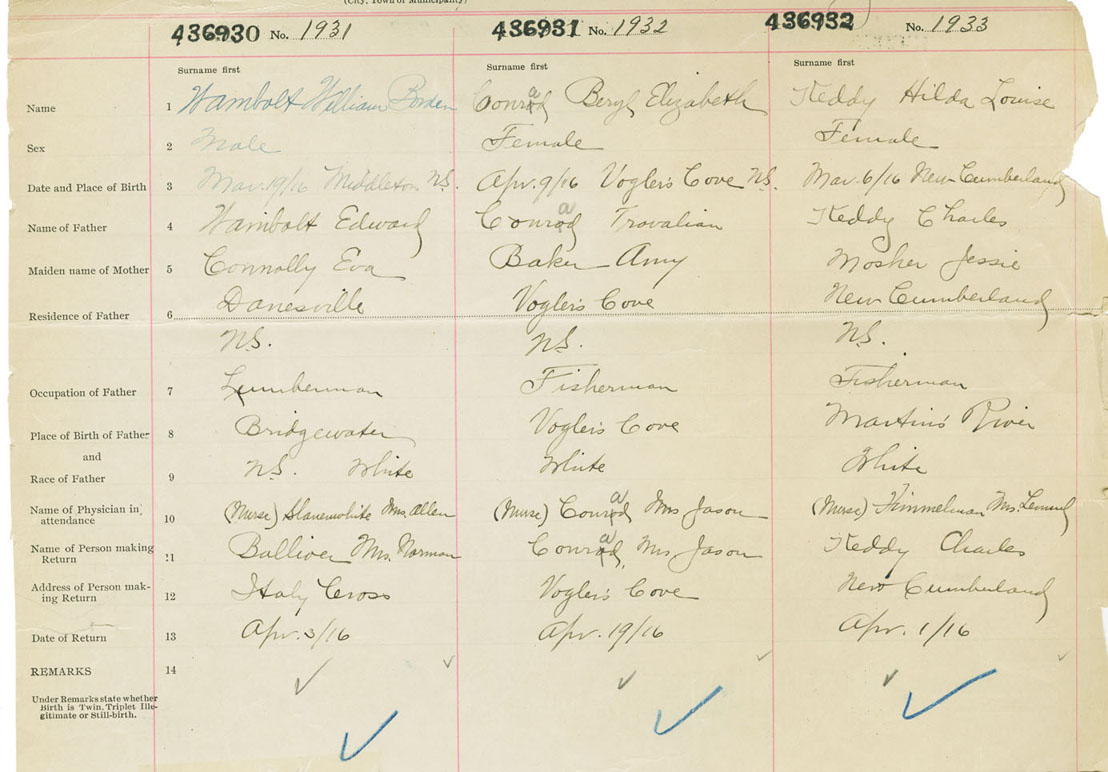 (City, Town or Municipality)
436930 No. 1931 436931 No. 1932 436932 No. 1933
Surname first Surname first Surname first
Name 1 Wambolt William Borden Conrad Beryl Elizabeth Keddy Hilda Louise
Sex 2 Male Female Female
Date and Place of Birth 3 Mar. 19/16 Middleton N.S. Apr. 9/16 Vogler's Cove N.S. Mar. 6/16 New Cumberland
Name of Father 4 Wambolt Edward Conrad Trovalian Keddy Charles
Maiden name of Mother 5 Connolly Eva Baker Amy Mosher Jessie
Residence of Father 6 Danesville Vogler's Cove New Cumberland
N.S. N.S. N.S.
Occupation of Father 7 Lumberman Fisherman Fisherman
Place of Birth of Father 8 Bridgewater Vogler's Cove Martin's River
and
Race of Father 9 N.S. White White White
Name of Physician in attendance 10 (Nurse) Slauenwhite Mrs. Allen (Nurse) Conrad, Mrs Jason (Nurse) Himmelman Mrs. Lemuel
Name of Person making Return 11 Bolliver Mrs. Norman Conrad, Mrs Jason Keddy Charles
Address of Person making Return 12 Italy Cross Vogler's Cove New Cumberland
Date of Return 13 Apr. 3/16 Apr. 19/16 Apr. 1/16
REMARKS 14
Under Remarks state whether
Birth is Twin, Triplet Ille-
gitimate or Still-birth.